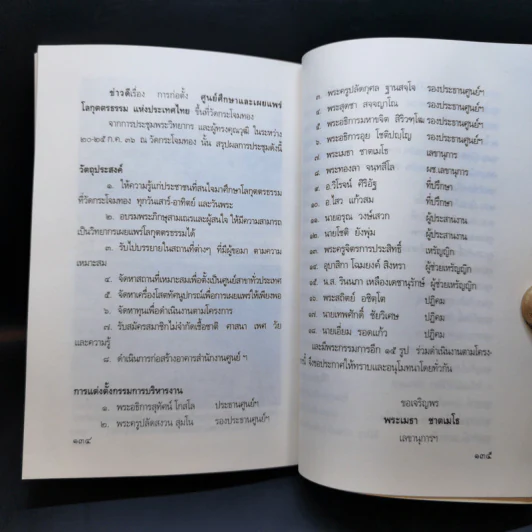 ข่าวดีเรื่อง การก่อตั้ง ศูนย์ศึกษาและเผยแพร่
โลกุตตรธรรม แห่งประเทศไทย ขึ้นที่วัดกระโจมทอง
จากการประชุมพระวิทยากร และผู้ทรงคุณวุฒิ ในระหว่าง
๒๐-๒๕ ก.ค. ๓๖ ณ วัดกระโจมทอง นั้น สรุปผลการประชุมดังนี้
วัตถุประสงค์
๑. ให้ความรู้แก่ประชาชนที่สนใจมาศึกษาโลกุตตรธรรม
ที่วัดกระโจมทอง ทุกวันเสาร์-อาทิตย์ และวันพระ
๒. อบรมพระภิกษุสามเณรและผู้สนใจ ให้มีความสามารถ
เป็นวิทยากรเผยแพร่โลกุตตรธรรมได้
๓. รับไปบรรยายในสถานที่ต่างๆ ที่มีผู้ขอมา ตามความ
เหมาะสม
๔. จัดหาสถานที่เหมาะสมเพื่อตั้งเป็นศูนย์สาขาทั่วประเทศ
๕. จัดหาเครื่องโสตทัศนูปกรณ์เพื่อการเผยแพร่ให้เพียงพอ
๖. จัดหาทุนเพื่อดำเนินงานตามโครงการ
๗. รับสมัครสมาชิกไม่จำกัดเชื้อชาติ ศาสนา เพศ วัย
และความรู้
๘. ดำเนินการก่อสร้างอาคารสำนักงานศูนย์ ฯ
การแต่งตั้งกรรมการบริหารงาน
๑. พระอธิการสุทัศน์ โกสโล ประธานศูนย์ฯ
๒. พระครูปลัดสงวน สุมโน รองประธานศูนย์ฯ
๑๓๔
๓. พระครูปลัดกุศล ฐานสจฺโจ รองประธานศูนย์ฯ
๔. พระสุดชา สจฺจญาโณ รองประธานศูนย์ฯ
๕. พระอธิการมหาขจิต สิริวฑฺโฒ รองประธานศูนย์ฯ
๖. พระอธิการอุย โชติปญฺโญ รองประธานศูนย์ฯ
๗. พระเมธา ชาตเมโธ เลขานุการ
๘. พระทองลา จนฺทสีโล ผช.เลขานุการ
๙. อ.วิโรจน์ ศิริอัฐ ที่ปรึกษา
๑๐. อ.ไสว แก้วสม ที่ปรึกษา
๑๑. นายอรุณ วงษ์เสวก ผู้ประสานงาน
๑๒. นายโชติ ยังพุ่ม ผู้ประสานงาน
๑๓. พระครูจิตรการประสิทธิ์ เหรัญญิก
๑๔. อุบาสิกา โฉมยงค์ สิงหรา ผู้ช่วยเหรัญญิก
๑๕. น.ส. รินนภา เหลืองเดชานุรักษ์ ผู้ช่วยเหรัญญิก
๑๖. พระสถิตย์ อชิตฺโต ปฏิคม
๑๗. นายเทพศักดิ์ ชัยวิเศษ ปฏิคม
๑๘. นายเอี่ยม รอดแก้ว ปฏิคม
และมีพระกรรมการอีก ๑๕ รูป ร่วมดำเนินงานตามโครง-
การนี้ จึงขอประกาศให้ทราบและอนุโมทนาโดยทั่วกัน
ขอเจริญพร
พระเมธา ชาตเมโธ
เลขานุการฯ
๑๓๕